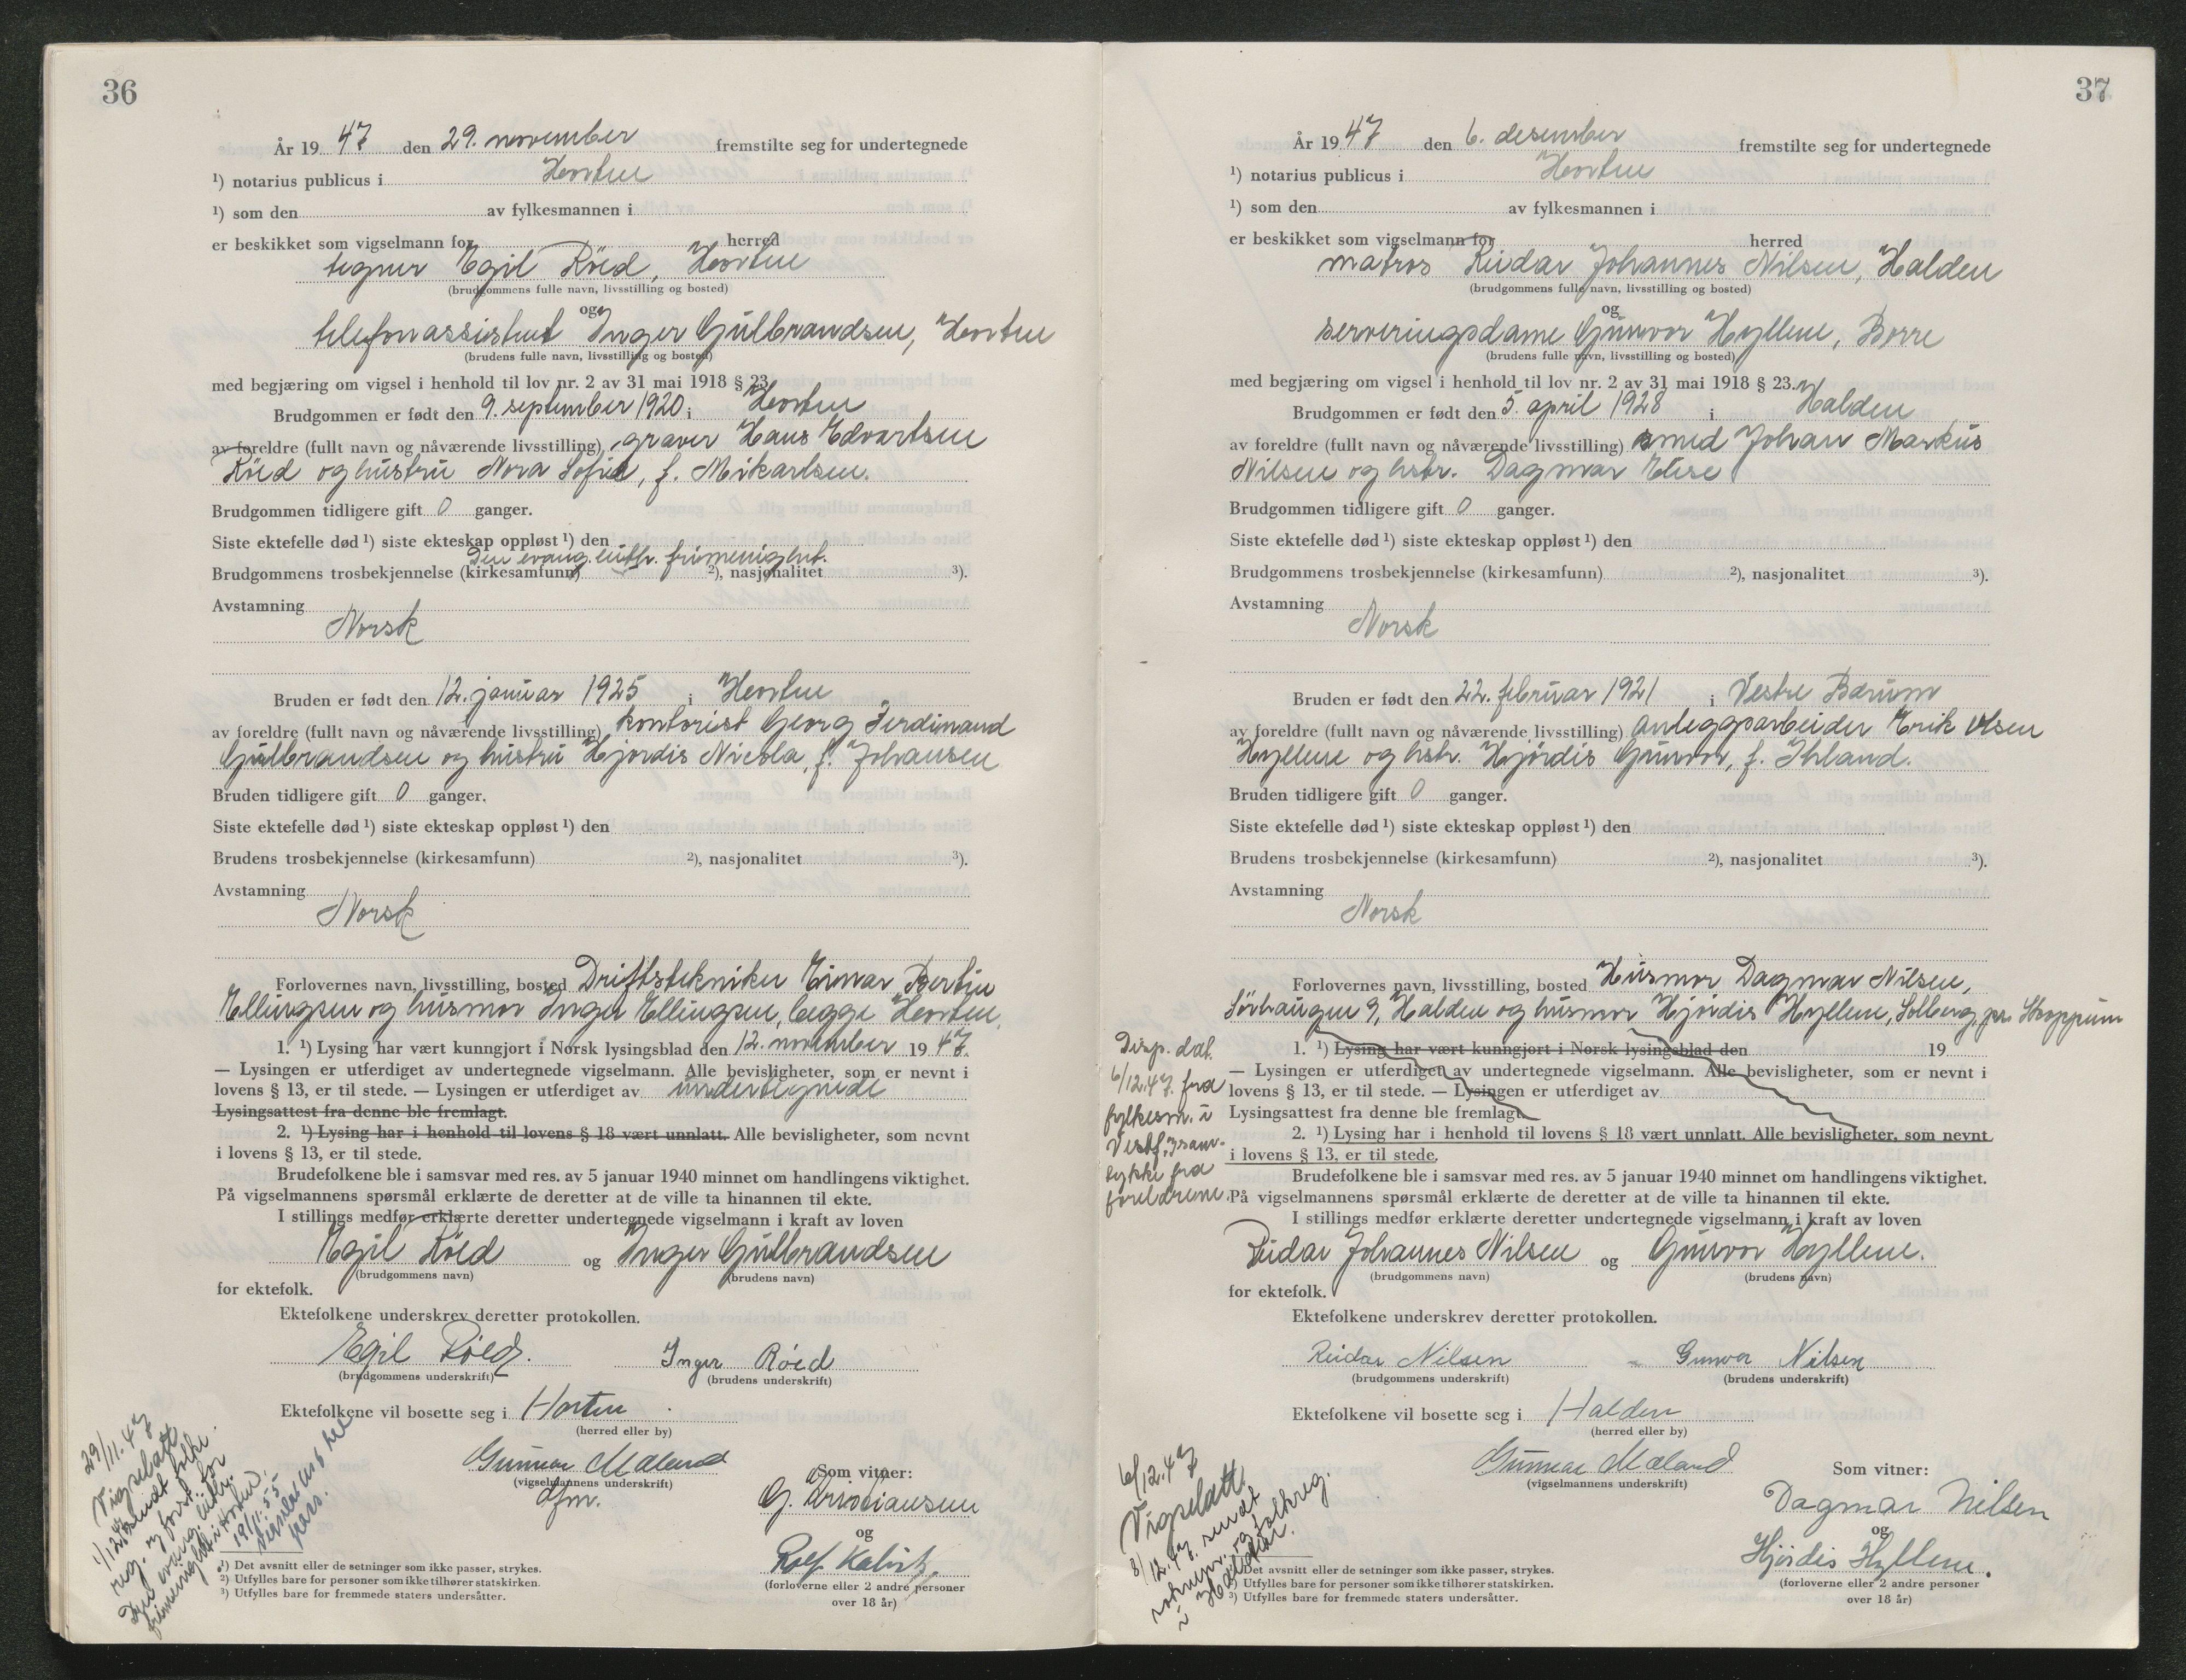 36
År 19 47 den 29. november fremstilte seg for undertegnede
¹) notarius publicus i Horten
¹) som den av fylkesmannen i
er beskikket som vigselmann for herred
tegner Egil Röed, Horten
(brudgommens fulle navn, livsstilling og bosted)
og
telefonassistent Inger Gulbrandsen, Horten
(brudens fulle navn, livsstilling og bosted)
med begjæring om vigsel i henhold til lov nr. 2 av 31 mai 1918 § 23.
Brudgommen er født den 9. september 1920 i Horten
av foreldre (fullt navn og nåværende livsstilling) graver Hans Edvartsen
Röed og hustru Nora Sofie, f. Mikarlsen.
Brudgommen tidligere gift 0 ganger.
Siste ektefelle død ¹) siste ekteskap oppløst ¹) den
Den evang. luth. frimenighet.
Brudgommens trosbekjennelse (kirkesamfunn) ²), nasjonalitet ³).
Avstamning
Norsk
Bruden er født den 12. januar 1925 i Horten
av foreldre (fullt navn og nåværende livsstilling) kontorist Georg Ferdinand
Gulbrandsen og hustru Hjordis Nicola, f. Johansen
Bruden tidligere gift 0 ganger.
Siste ektefelle død ¹) siste ekteskap oppløst ¹) den
Brudens trosbekjennelse (kirkesamfunn) ²), nasjonalitet ³).
Avstamning
Norsk
Forlovernes navn, livsstilling, bosted Driftstekniker Einar Bertin
Ellingsen og husmor Inger Ellingsen, begge Horten.
1. ¹) Lysing har vært kunngjort i Norsk lysingsblad den 12. november 19 47.
— Lysingen er utferdiget av undertegnede vigselmann. Alle bevisligheter, som er nevnt i
lovens § 13, er til stede. — Lysingen er utferdiget av undertegnede
Lysingsattest fra denne ble fremlagt.
2. ¹) Lysing har i henhold til lovens § 18 vært unnlatt. Alle bevisligheter, som nevnt
i lovens § 13, er til stede.
Brudefolkene ble i samsvar med res. av 5 januar 1940 minnet om handlingens viktighet.
På vigselmannens spørsmål erklærte de deretter at de ville ta hinannen til ekte.
I stillings medfør erklærte deretter undertegnede vigselmann i kraft av loven
Egil Röed og Inger Gulbrandsen
(brudgommens navn) (brudens navn)
for ektefolk.
Ektefolkene underskrev deretter protokollen.
Egil Röed. Inger Röed
(brudgommens underskrift) (brudens underskrift)
Ektefolkene vil bosette seg i Horten
(herred eller by)
Gunnar Mæland
(vigselmannens underskrift)
dfm.
Som vitner:
G. Kristiansen
og
Rolf
(forloverne eller 2 andre personer
over 18 år)
29/11.47
Vigselatt.
1/12.47 sendt folke-
reg. og forst. for
Den evang. luth.
frimenighet i Horten.
19/11.55
¹) Det avsnitt eller de setninger som ikke passer, strykes.
²) Utfylles bare for personer som ikke tilhører statskirken.
³) Utfylles bare for fremmede staters undersåtter.
37
År 19 47 den 6. desember fremstilte seg for undertegnede
¹) notarius publicus i Horten
¹) som den av fylkesmannen i
er beskikket som vigselmann for herred
matros Reidar Johannes Nilsen, Halden
(brudgommens fulle navn, livsstilling og bosted)
og
serveringsdame Gunvor Hyllene, Borre
(brudens fulle navn, livsstilling og bosted)
med begjæring om vigsel i henhold til lov nr. 2 av 31 mai 1918 § 23.
Brudgommen er født den 5. april 1928 i Halden
av foreldre (fullt navn og nåværende livsstilling) smed Johan Markus
Nilsen og hstr. Dagmar Elise
Brudgommen tidligere gift 0 ganger.
Siste ektefelle død ¹) siste ekteskap oppløst ¹) den
Brudgommens trosbekjennelse (kirkesamfunn) ²), nasjonalitet ³).
Avstamning
Norsk
Bruden er født den 22. februar 1921 i Vestre Bærum
av foreldre (fullt navn og nåværende livsstilling) anleggsarbeider Erik Olsen
Hyllene og hstr. Hjördis Gunvor, f. Ihland.
Bruden tidligere gift 0 ganger.
Siste ektefelle død ¹) siste ekteskap oppløst ¹) den
Brudens trosbekjennelse (kirkesamfunn) ²), nasjonalitet ³).
Avstamning
Norsk
Forlovernes navn, livsstilling, bosted Husmor Dagmar Nilsen,
Sörhaugen 9, Halden og husmor Hjördis Hyllene, Solberg, pr. Skoppum
1. ¹) Lysing har vært kunngjort i Norsk lysingsblad den 19
— Lysingen er utferdiget av undertegnede vigselmann. Alle bevisligheter, som er nevnt i
lovens § 13, er til stede. — Lysingen er utferdiget av
Lysingsattest fra denne ble fremlagt.
2. ¹) Lysing har i henhold til lovens § 18 vært unnlatt. Alle bevisligheter, som nevnt
i lovens § 13, er til stede.
Disp. dat.
6/12.47. fra
fylkesm. i
Vestf., sam-
tykke fra
foreldrene.
Brudefolkene ble i samsvar med res. av 5 januar 1940 minnet om handlingens viktighet.
På vigselmannens spørsmål erklærte de deretter at de ville ta hinannen til ekte.
I stillings medfør erklærte deretter undertegnede vigselmann i kraft av loven
Reidar Johannes Nilsen og Gunvor Hyllene.
(brudgommens navn) (brudens navn)
for ektefolk.
Ektefolkene underskrev deretter protokollen.
Reidar Nilsen Gunvor Nilsen
(brudgommens underskrift) (brudens underskrift)
Ektefolkene vil bosette seg i Halden
(herred eller by)
Gunnar Mæland
(vigselmannens underskrift)
Som vitner:
Dagmar Nilsen
og
Hjördis Hyllene.
(forloverne eller 2 andre personer
over 18 år)
6/12.47
Vigselatt.
8/12.47. sendt
soknepr. og folkreg.
i Halden.
¹) Det avsnitt eller de setninger som ikke passer, strykes.
²) Utfylles bare for personer som ikke tilhører statskirken.
³) Utfylles bare for fremmede staters undersåtter.